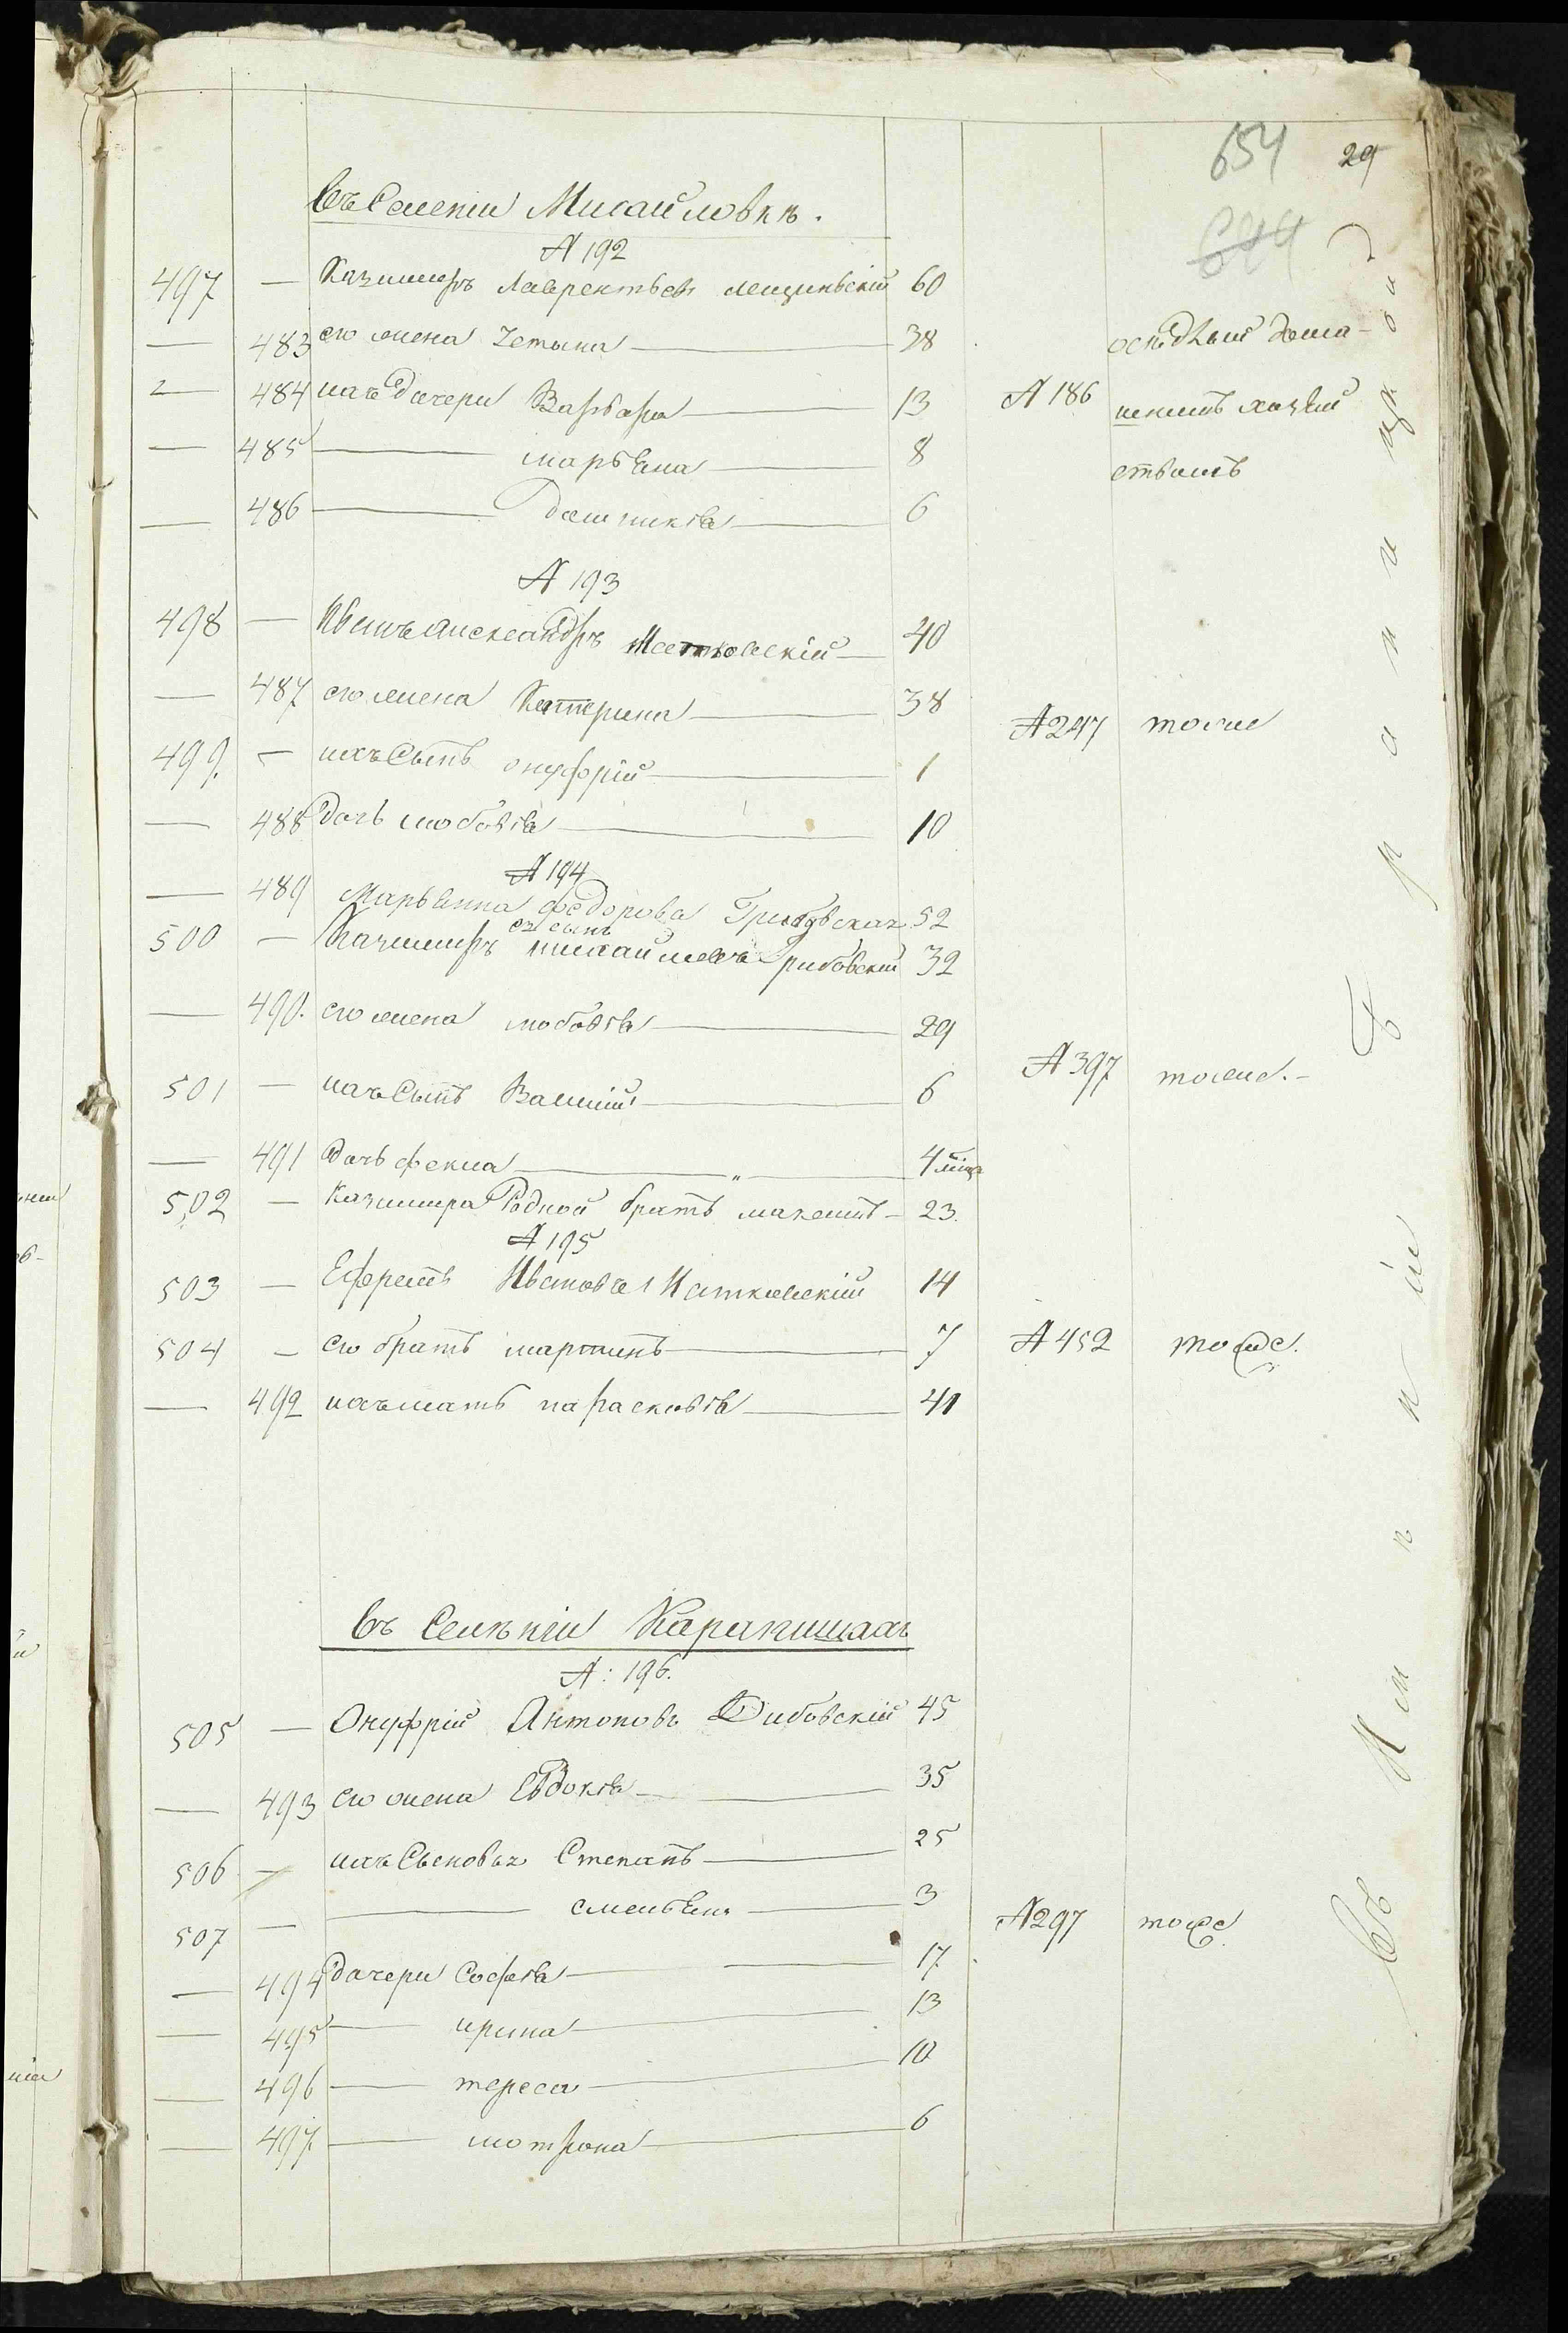 654 29
644
Въ Селеніи Михайловкѣ.
№ 192
497 — Казимиръ Лаврентьевъ 60
— 483 его жена 38 оседлым дома-
— 484 ихъ дочери Варвара 13 № 186 шнимъ хозяй
— 485 — марьяна 8 ствомъ
— 486 — доминикія 6
№ 193
498 — Иванъ александръ 40
— 487 его жена Катерина 38 № 247 тоже
499. — ихъ Сынъ онуфрій 1
— 488 дочь любовія 10
№ 194
— 489 Марьянна федорова Грибовская 52
500 — Казимиръ ея сынъ михайловъ Грибовскій 32
— 490. его жена любовія 29
501 — ихъ Сынъ Василій 6 № 397 тоже.-
— 491 дочь фекла 4 мѣца
502 — Казимира Родной братъ максимъ — 23.
№ 195
503 — Ефремъ Ивановъ Катковскій 14
504 — его братъ мартинъ 7 № 452 тоже.
— 492 ихъ мать парасковія 41
Въ Селѣніи Каракишахъ
№: 196.
505 — Онуфрій Антоновъ Дибовскій 45
— 493 его жена Евдокія 35
506 — ихъ Сыновья Степанъ 25
507 — 3 № 297 тоже.
— 494 дочери Софія 17
— 495 — ирина 13
— 496 — тереса 10
— 497 — мотрона 6